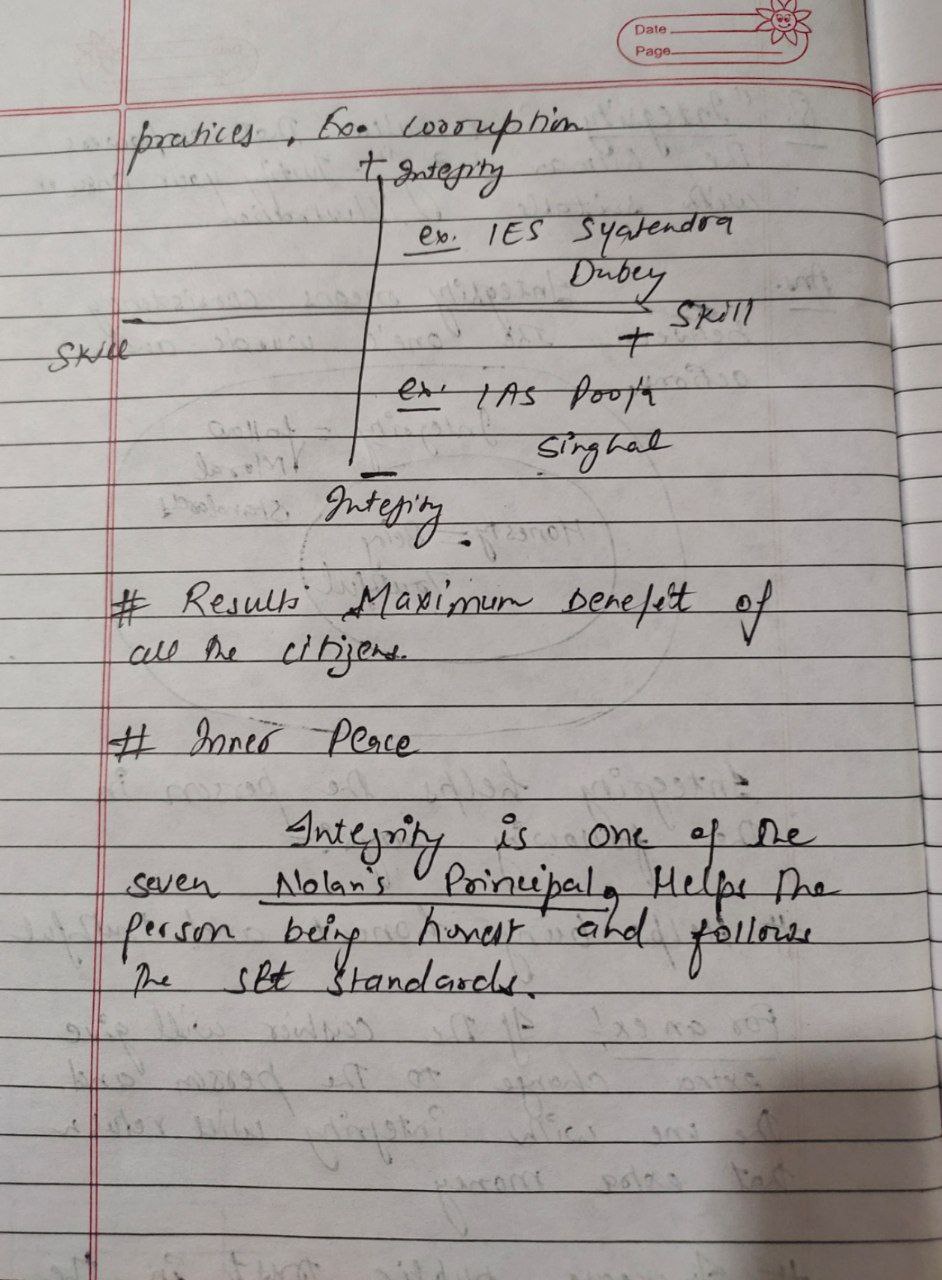 Date
Page
pratices, Ex. corruption
+ Integity
ex. IES Syatendra
Dubey
Skill
+
Skill
ex. IAS Pooja
Singhal
−
Integity.
# Results Maximum benefit of
all the citizens.
# Inner Peace
Integrity is one of the
seven Nolan's Principal, Helps the
person being honest and follows
the set standards.